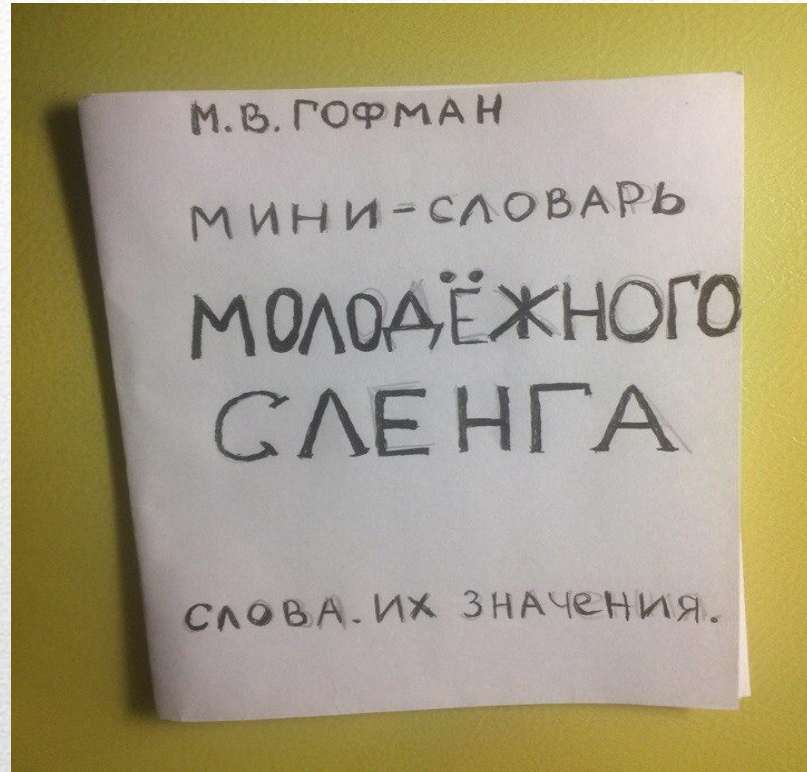 М.В. ГОФМАН
МИНИ-СЛОВАРЬ
МОЛОДЁЖНОГО
СЛЕНГА
СЛОВА. ИХ ЗНАЧЕНИЯ.